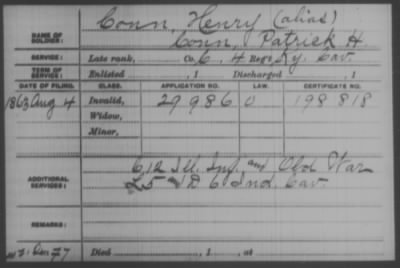 Conn, Henry (alias)
NAME OF SOLDIER: Conn, Patrick H
SERVICE: Late rank, Co. C, 4 Reg't Ky. Cav
TERM OF SERVICE: Enlisted , 1 Discharged , 1
DATE OF FILING. CLASS. APPLICATION NO. LAW. CERTIFICATE NO.
1863 Aug 4 Invalid, 29986 O 198818
Widow,
Minor,
ADDITIONAL SERVICES: C, 12 Ill. Inf. and Old War
25 D 6 Ind. Cav.
REMARKS:
Dec 77 Died , 1 , at